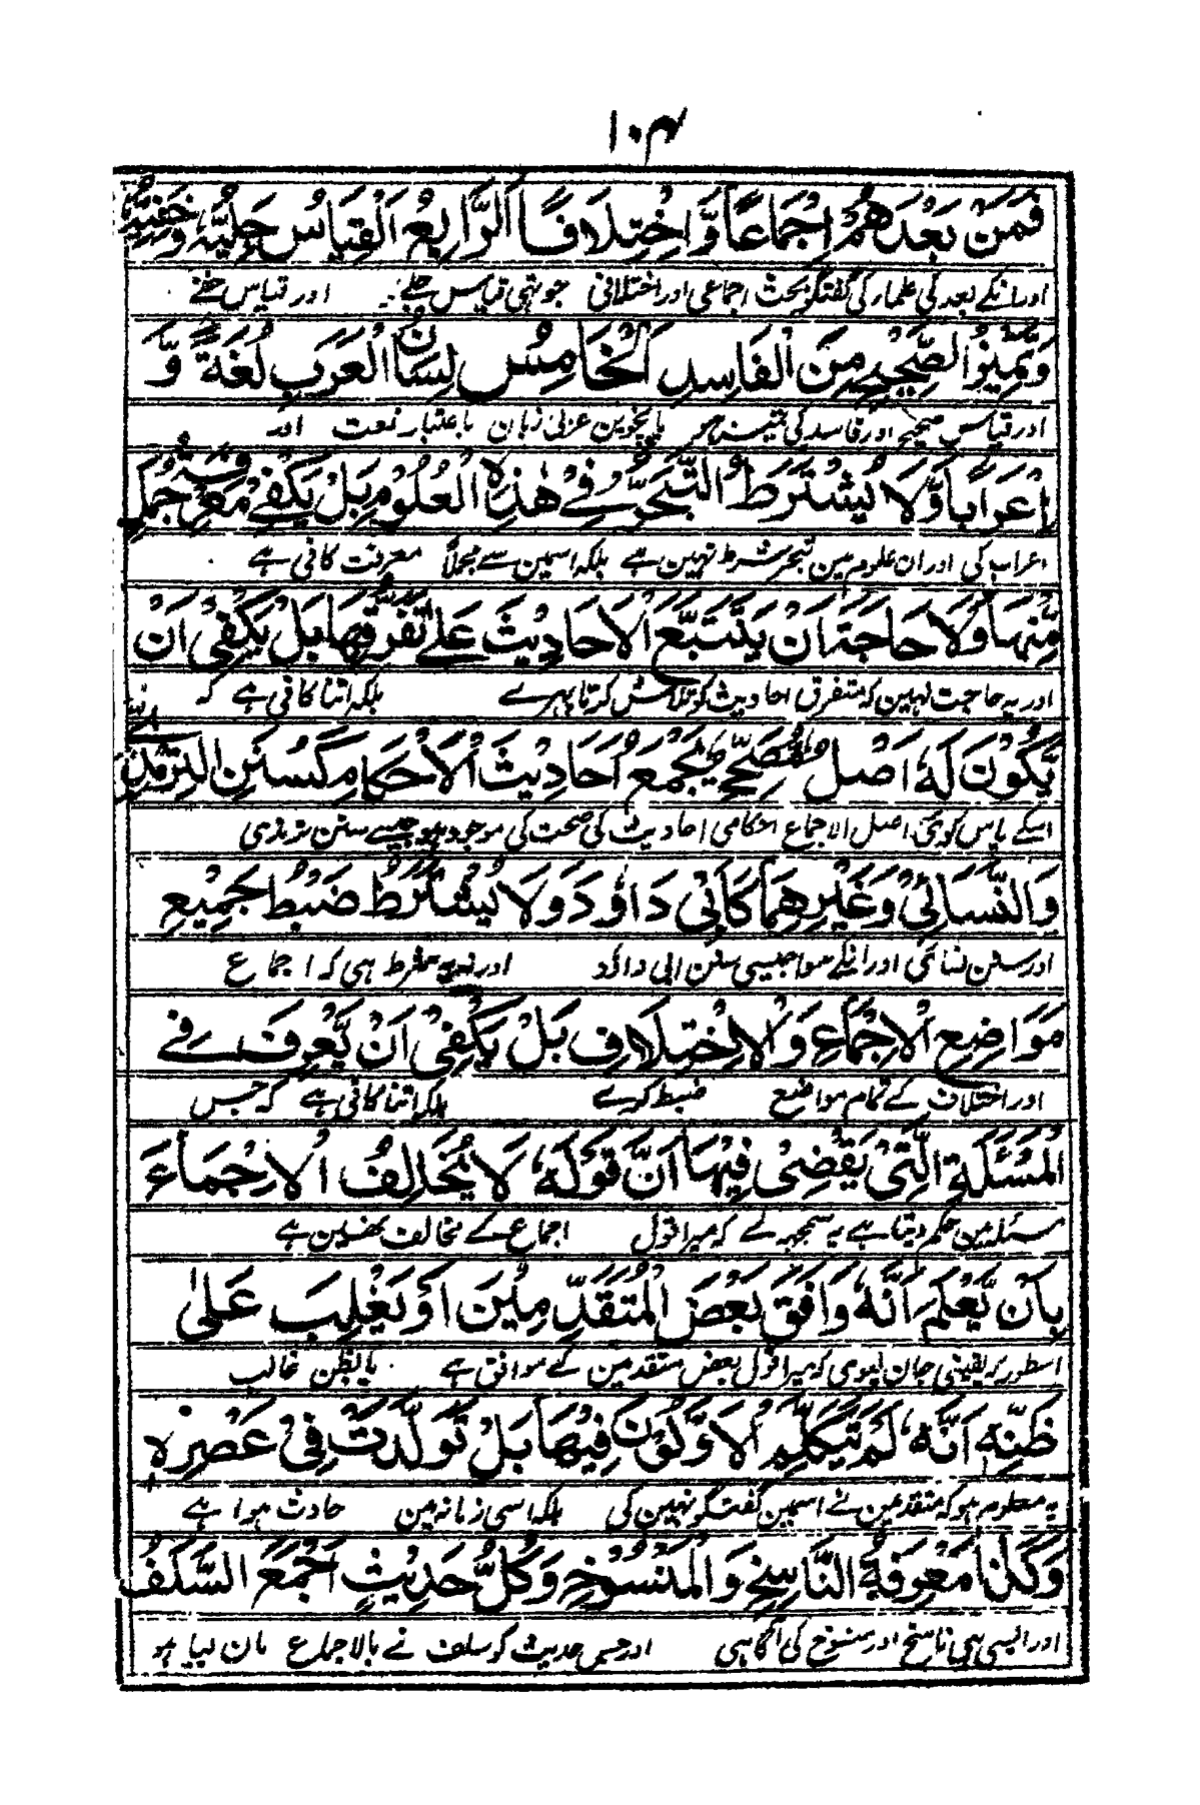 ۱۰۴
فَمَنْ بَعْدَهُمْ اِجْمَاعًا وَّاخْتِلَافًا اَلرَّابِعُ اَلْقِيَاسُ جَلِيُّهٗ وَخَفِيُّهٗ
اور انکے بعد کی علمار کی گفتگو بحث اجماعی اور اختلافی جوتہی قیاس جلے اور قیاس خفے
وَتَمِيْزُ الصَّحِيْحِ مِنَ الْفَاسِدِ اَلْخَامِسُ لِسَانُ الْعَرَبِ لُغَةً وَّ
اور قیاس صحیح اور فاسد کی تمیز ہو پانچوین عربی زبان باعتبار لغت اور
اِعْرَابًا وَّلَا يُشْتَرَطُ التَّبَحُّرُ فِيْ هٰذِهِ الْعُلُوْمِ بَلْ يَكْفِيْ مَعْرِفَةُ جُمَلٍ
اعراب کی اور ان علوم مین تبحر شرط نہین ہے بلکہ اسمین سے مجملاً معرفت کافی ہے
مِّنْهَا وَلَا حَاجَةَ اَنْ يَتَتَبَّعَ الْاَحَادِيْثَ عَلٰے تَفَرُّقِهَا بَلْ يَكْفِىْ اَنْ
اور یہ حاجت نہین کہ متفرق احادیث کو تلاش کرتا پہرے بلکہ اتنا کافی ہے کہ
يَّكُوْنَ لَهٗ اَصْلٌ مُصَحَّحٌ يَجْمَعُ اَحَادِيْثَ الْاَحْكَامِ كَسُنَنِ التِّرْمِذِيِّ
اسکے پاس کوئی اصل الاجماع احکامی احادیث کی صحت کی موجود ہو جیسے سنن ترمذی
وَالنَّسَائِيِّ وَغَيْرِهِمَا كَاَبِىْ دَاوٗدَ وَلَا يُشْتَرَطُ ضَبْطُ جَمِيْعِ
اور سنن نسائی اور انکے سوا جیسی سنن ابی داؤد اور نہ یہ شرط ہی کہ اجماع
مَوَاضِعِ الْاِجْمَاعِ وَالْاِخْتِلَافِ بَلْ يَكْفِىْ اَنْ يَّعْرِفَ فِے
اور اختلاف کے تمام مواضع ضبط کرے بلکہ اتنا کافی ہے کہ جس
الْمَسْئَلَةِ الَّتِىْ يَقْضِىْ فِيْهَا اَنَّ قَوْلَهٗ لَا يُخَالِفُ الْاِجْمَاعَ
مسئلہ مین حکم دیتا ہے یہ سمجہہ لے کہ میرا قول اجماع کے مخالف نہین ہے
بِاَنْ يَّعْلَمَ اَنَّهٗ وَافَقَ بَعْضَ الْمُتَقَدِّمِيْنَ اَوْ يَغْلِبَ عَلٰى
اسطور کہ یقینی جان لیوی کہ میرا قول بعض متقدمین کے موافق ہے یا بظن غالب
ظَنِّهٖ اَنَّهٗ لَمْ يَتَكَلَّمِ الْاَوَّلُوْنَ فِيْهَا بَلْ تَوَلَّدَتْ فِىْ عَصْرِهٖ
یہ معلوم ہو کہ متقدمین نے اسمین گفتگو نہین کی بلکہ اسی زمانہ مین حادث ہوا ہے
وَكَذَا مَعْرِفَةُ النَّاسِخِ وَالْمَنْسُوْخِ وَكُلُّ حَدِيْثٍ اَجْمَعَ السَّلَفُ
اور ایسی ہی ناسخ اور منسوخ کی آگاہی اور جس حدیث کو سلف نے بالاجماع مان لیا ہو